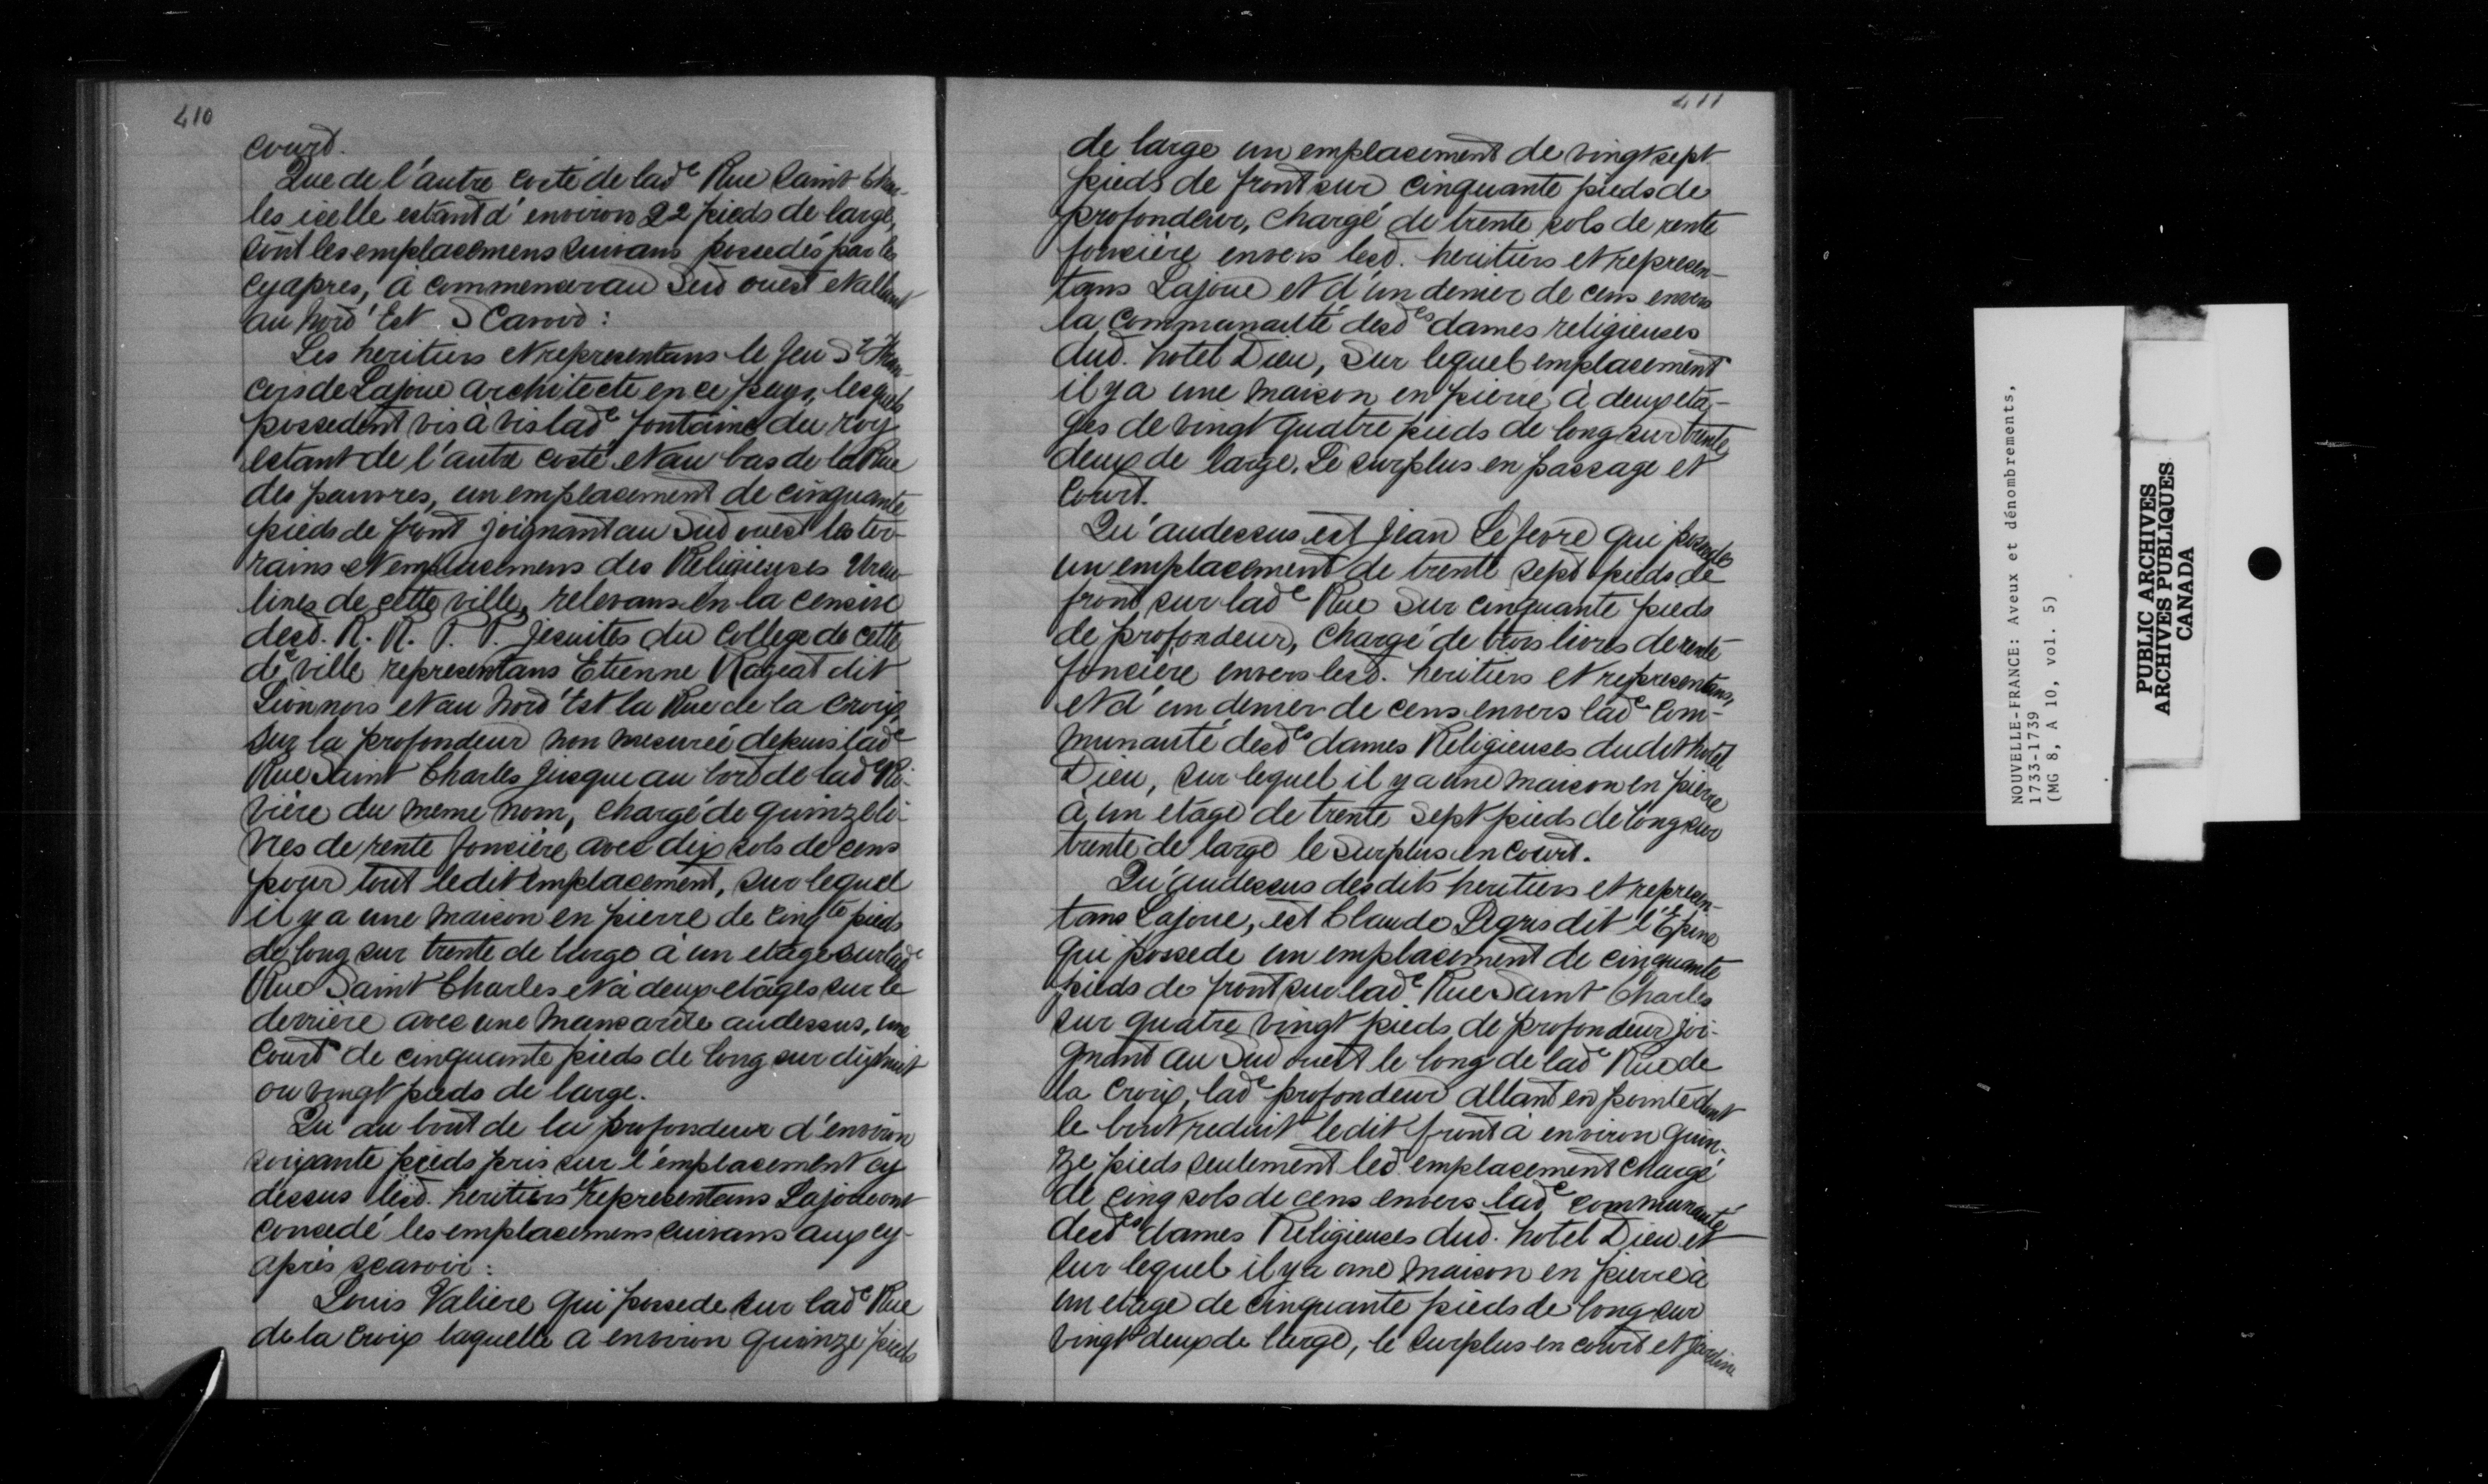 410
court.
Que de l'autre costé de lad^e Rue Saint Char-
les icelle estant d'environ 22 pieds de large,
sont les emplacemens suivans possedés par les
cy apres, à commencer au Sud ouest et allant
au Nord'Est Scavoir :
Les heritiers et representans le feu S^r Fran-
cois de Lajoue architecte en ce pays, lesquels
possedent vis à vis lad^e fontaine du roy
estant de l'autre costé et au bas de la Rue
des pauvres, un emplacement de cinquante
pieds de front joignant au Sud ouest les ter-
rains et emplacemens des Religieuses Ursu-
lines de cette ville, relevans en la censive
desd. R. R. P. P. Jesuites du College de cette
d^e ville representans Etienne Rageat dit
Lionnois et au Nord'Est la Rue de la Croix,
sur la profondeur non mesurée depuis lad^e
Rue Saint Charles jusque au bord de lad^e Ri-
vière du meme nom, chargé de quinze li-
vres de rente foncière avec dix sols de cens
pour tout ledit emplacement, sur lequel
il y a une maison en pierre de cinq^te pieds
de long sur trente de large à un etage sur lad^e
Rue Saint Charles et à deux etages sur le
derrière avec une mansarde audessus, une
Court de cinquante pieds de long sur dix huit
ou vingt pieds de large.
Qu'au bout de la profondeur d'environ
soixante pieds pris sur l'emplacement cy
dessus lesd. heritiers et representans Lajoue ont
concedé les emplacemens suivans aux cy-
après scavoir :
Louis Valiere qui possede sur lad^e Rue
de la Croix laquelle a environ quinze pieds
411
de large un emplacement de vingt sept
pieds de front sur cinquante pieds de
profondeur, chargé de trente sols de rente
foncière envers lesd. heritiers et represen-
tans Lajoue et d'un denier de cens envers
la communauté desd^es dames religieuses
dud. hotel Dieu, sur lequel emplacement
il y a une maison en pierre à deux eta-
ges de vingt quatre pieds de long sur trente
deux de large. Le surplus en passage et
Court.
Qu'audessus est Jean Lefevre qui possede
un emplacement de trente sept pieds de
front sur lad^e Rue sur cinquante pieds
de profondeur, chargé de trois livres de rente
foncière envers lesd. heritiers et representans,
et d'un denier de cens envers lad^e Com-
munauté desd^es dames Religieuses dudit hotel
Dieu, sur lequel il y a une maison en pierre
à un etage de trente sept pieds de long sur
trente de large le surplus en court.
Qu'audessus desdits heritiers et represen-
tans Lajoue, est Claude Legris dit l'Epine
qui possede un emplacement de cinquante
pieds de front sur lad^e Rue Saint Charles
sur quatre vingt pieds de profondeur joi-
gnant au Sud ouest le long de lad^e Rue de
la Croix, lad^e profondeur allant en pointe dont
le bout reduit ledit front à environ quin-
ze pieds seulement led. emplacement chargé
de cinq sols de cens envers lad^e communauté
desd^es dames Religieuses dud. hotel Dieu et
sur lequel il y a une maison en pierre à
un etage de cinquante pieds de long sur
vingt deux de large, le surplus en court et jardin
NOUVELLE-FRANCE: Aveux et dénombrements,
1733-1739
(MG 8, A 10, vol. 5)
PUBLIC ARCHIVES
ARCHIVES PUBLIQUES
CANADA